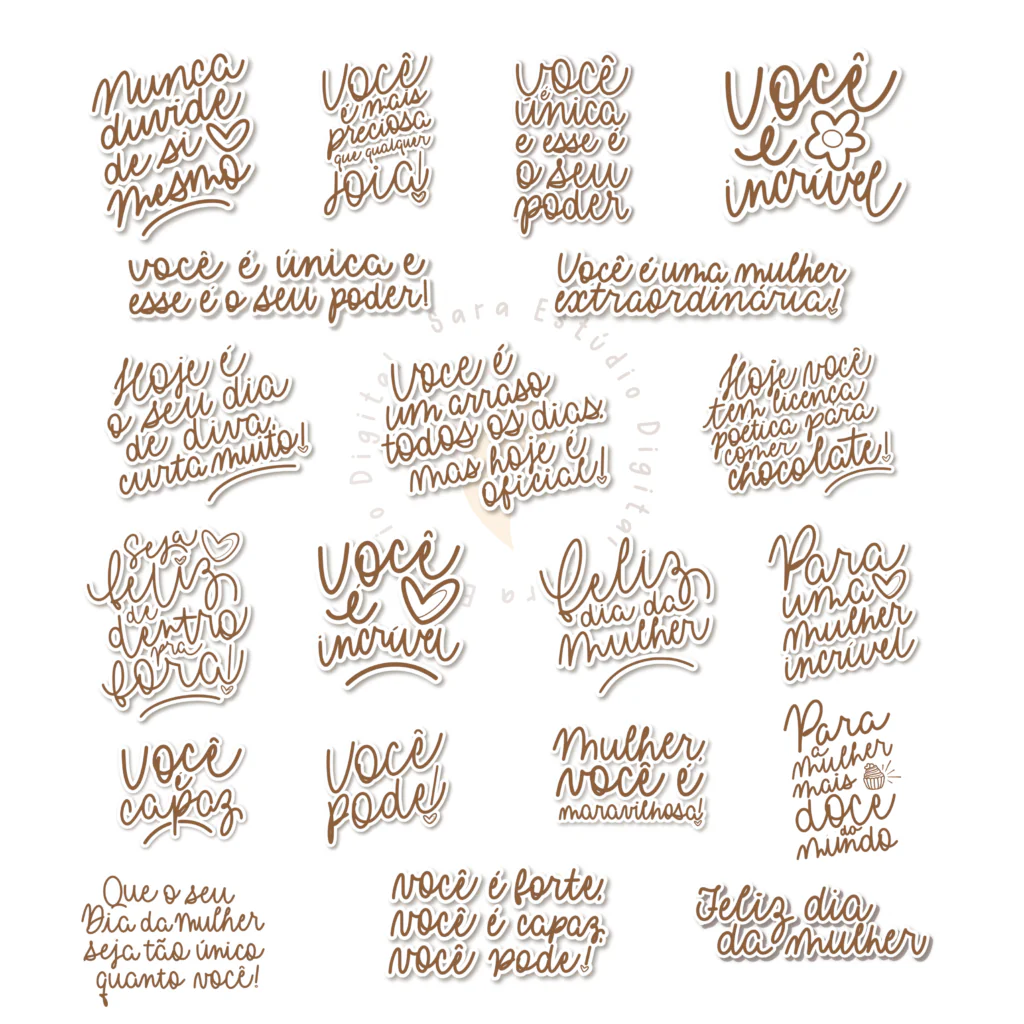 Nunca
duvide
de si
mesmo
Você
é mais
preciosa
que qualquer
joia!
você
é
única
e esse é
o seu
poder
Você
é
incrível
você é única e
esse é o seu poder!
Você é uma mulher
extraordinária!
Hoje é
o seu dia
de diva,
curta muito!
Voce é
um arraso
todos os dias,
mas hoje é
oficial!
Hoje você
tem licença
poética para
comer
chocolate!
Seja
feliz
de
dentro
pra
fora!
Você
é
incrível
feliz
dia da
Mulher
Para
uma
mulher
incrível
Você
é
capaz
Você
pode!
Mulher,
você é
maravilhosa!
Para
a
mulher
mais
doce
do
mundo
Que o seu
Dia da mulher
seja tão único
quanto você!
você é forte,
você é capaz,
você pode!
Feliz dia
da mulher
Sara Estúdio Digital